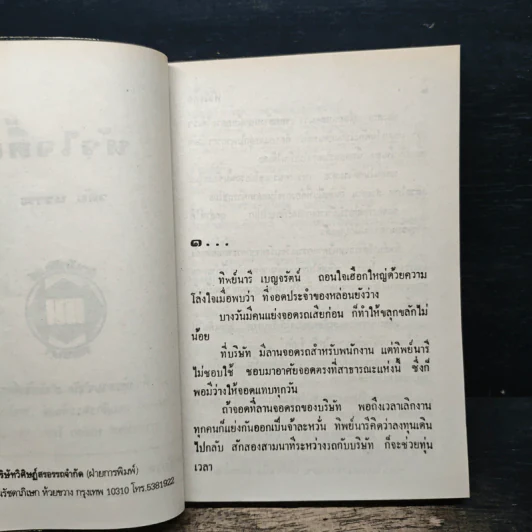 หัวใจที่
ริษัทวิศิษฎ์สรอรรถจำกัด (ฝ่ายการพิมพ์)
นรัชดาภิเษก ห้วยขวาง กรุงเทพ 10310 โทร.5381922
๑...
ทิพย์นารี เบญจรัตน์ ถอนใจเฮือกใหญ่ด้วยความ
โล่งใจเมื่อพบว่า ที่จอดประจำของหล่อนยังว่าง
บางวันมีคนแย่งจอดรถเสียก่อน ก็ทำให้ขลุกขลักไม่
น้อย
ที่บริษัท มีลานจอดรถสำหรับพนักงาน แต่ทิพย์นารี
ไม่ชอบใช้ ชอบมาอาศัยจอดตรงที่สาธารณะแห่งนี้ ซึ่งก็
พอมีว่างให้จอดแทบทุกวัน
ถ้าจอดที่ลานจอดรถของบริษัท พอถึงเวลาเลิกงาน
ทุกคนก็แย่งกันออกเป็นจ้าละหวั่น ทิพย์นารีคิดว่าลงทุนเดิน
ไปกลับ สักสองสามนาทีระหว่างรถกับบริษัท ก็จะช่วยทุ่น
เวลา